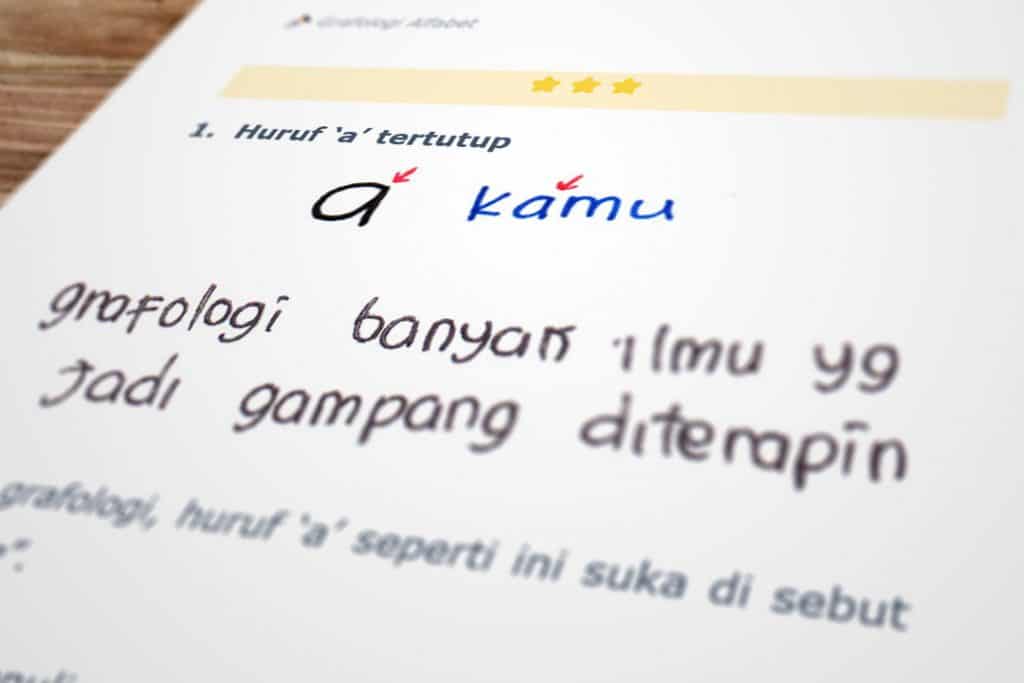 Grafologi Alfabet
1. Huruf ‘a’ tertutup
a kamu
grafologi banyak ilmu yg
Jadi gampang diterapin
grafologi, huruf ‘a’ seperti ini suka di sebut